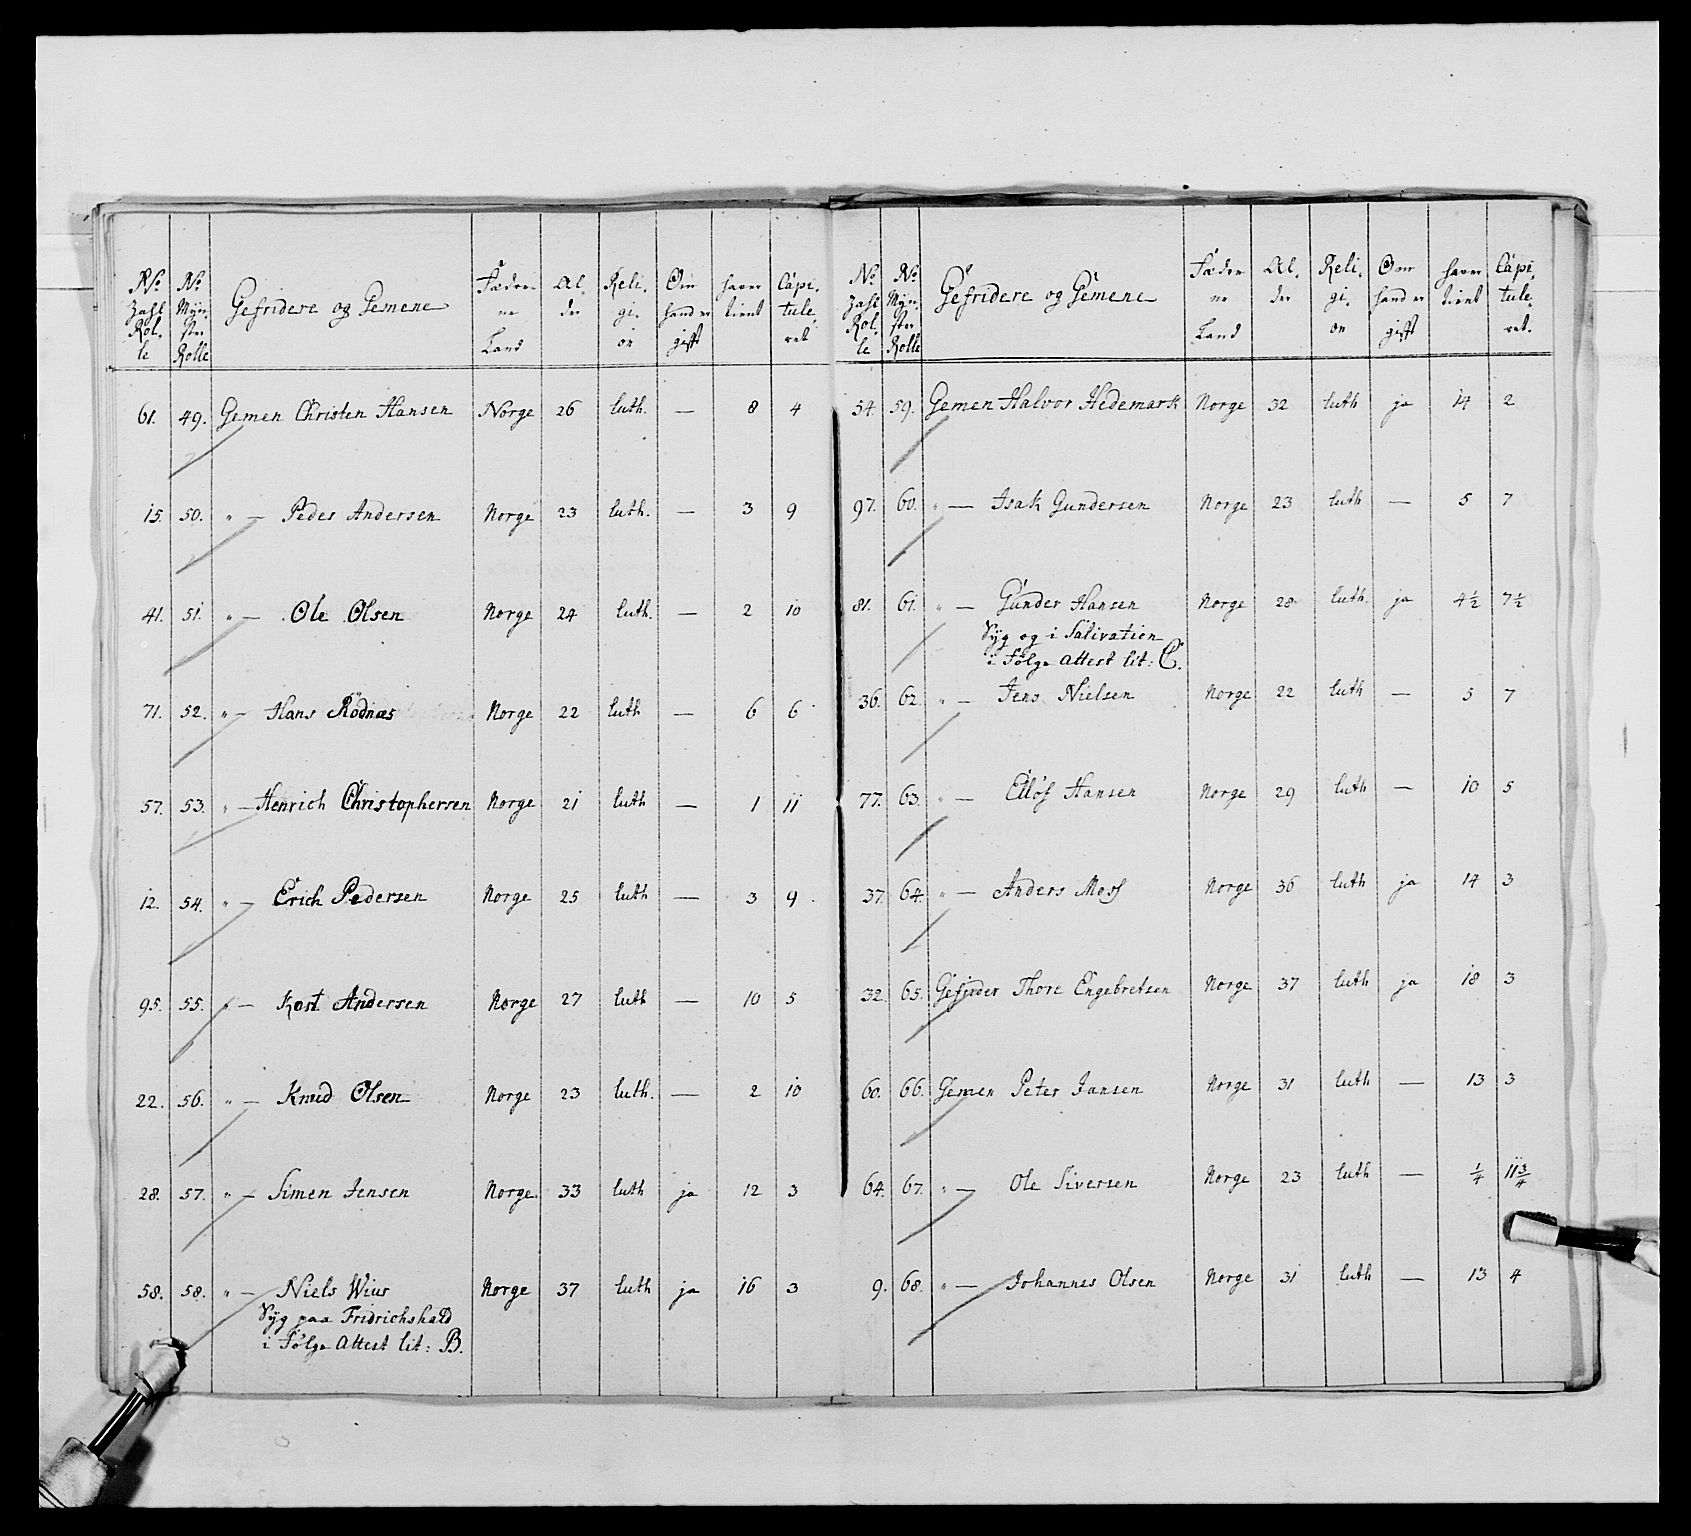 No Zahl Rol. le | No Mÿn. ster Rolle | Gefridere og Gemene | Fæder ne Land | Al. der | Reli. gi. on | Om hand er gift | haver tient | Capi. tule. ret
61. 49. Gemen Christen Hansen Norge 26 luth. — 8 4
15. 50. " — Peder Andersen Norge 23 luth. — 3 9
41. 51. " — Ole Olsen Norge 24 luth. — 2 10
71. 52. " — Hans Rödnæs Norge 22 luth — 6 6
57. 53. " — Henrich Christophersen Norge 21 luth — 1 11
12. 54. " — Erich Pedersen Norge 25 luth — 3 9
95. 55. " — Kost Andersen Norge 27 luth — 10 5
22. 56. " — Knud Olsen Norge 23 luth. — 2 10
28. 57. " — Simen Jensen Norge 33 luth ja 12 3
58. 58. " — Niels Wiur Norge 37 luth ja 16 3
Syg paa Fridrichshald
i Følge Attest lit: B.
No Zahl Rol. le | No Mÿn. ster Rolle | Gefridere og Gemene | Fæder ne Land | Al. der | Reli. gi. on | Om hand er gift | haver tient | Capi. tule. ret.
54. 59. Gemen Halvor Hedemark Norge 32 luth ja 14 2
97. 60. " — Isak Gundersen Norge 23 luth — 5 7
81. 61. " — Gunder Hansen Norge 28 luth. ja 4½ 7½
Syg og i Salivation
i Følge Attest lit: C.
36. 62. " — Jens Nielsen Norge 22 luth — 5 7
77. 63. " — Eiløf Hansen Norge 29 luth — 10 5
37. 64. " — Anders Moss Norge 36 luth ja 14 3
32. 65. Gefrider Thore Engebretsen Norge 37 luth ja 18 3
60. 66. Gemen Peter Jansen Norge 31 luth — 13 3
64. 67. " — Ole Siversen Norge 23 luth — ¼ 11¾
9. 68. " — Johannes Olsen Norge 31 luth — 13 4